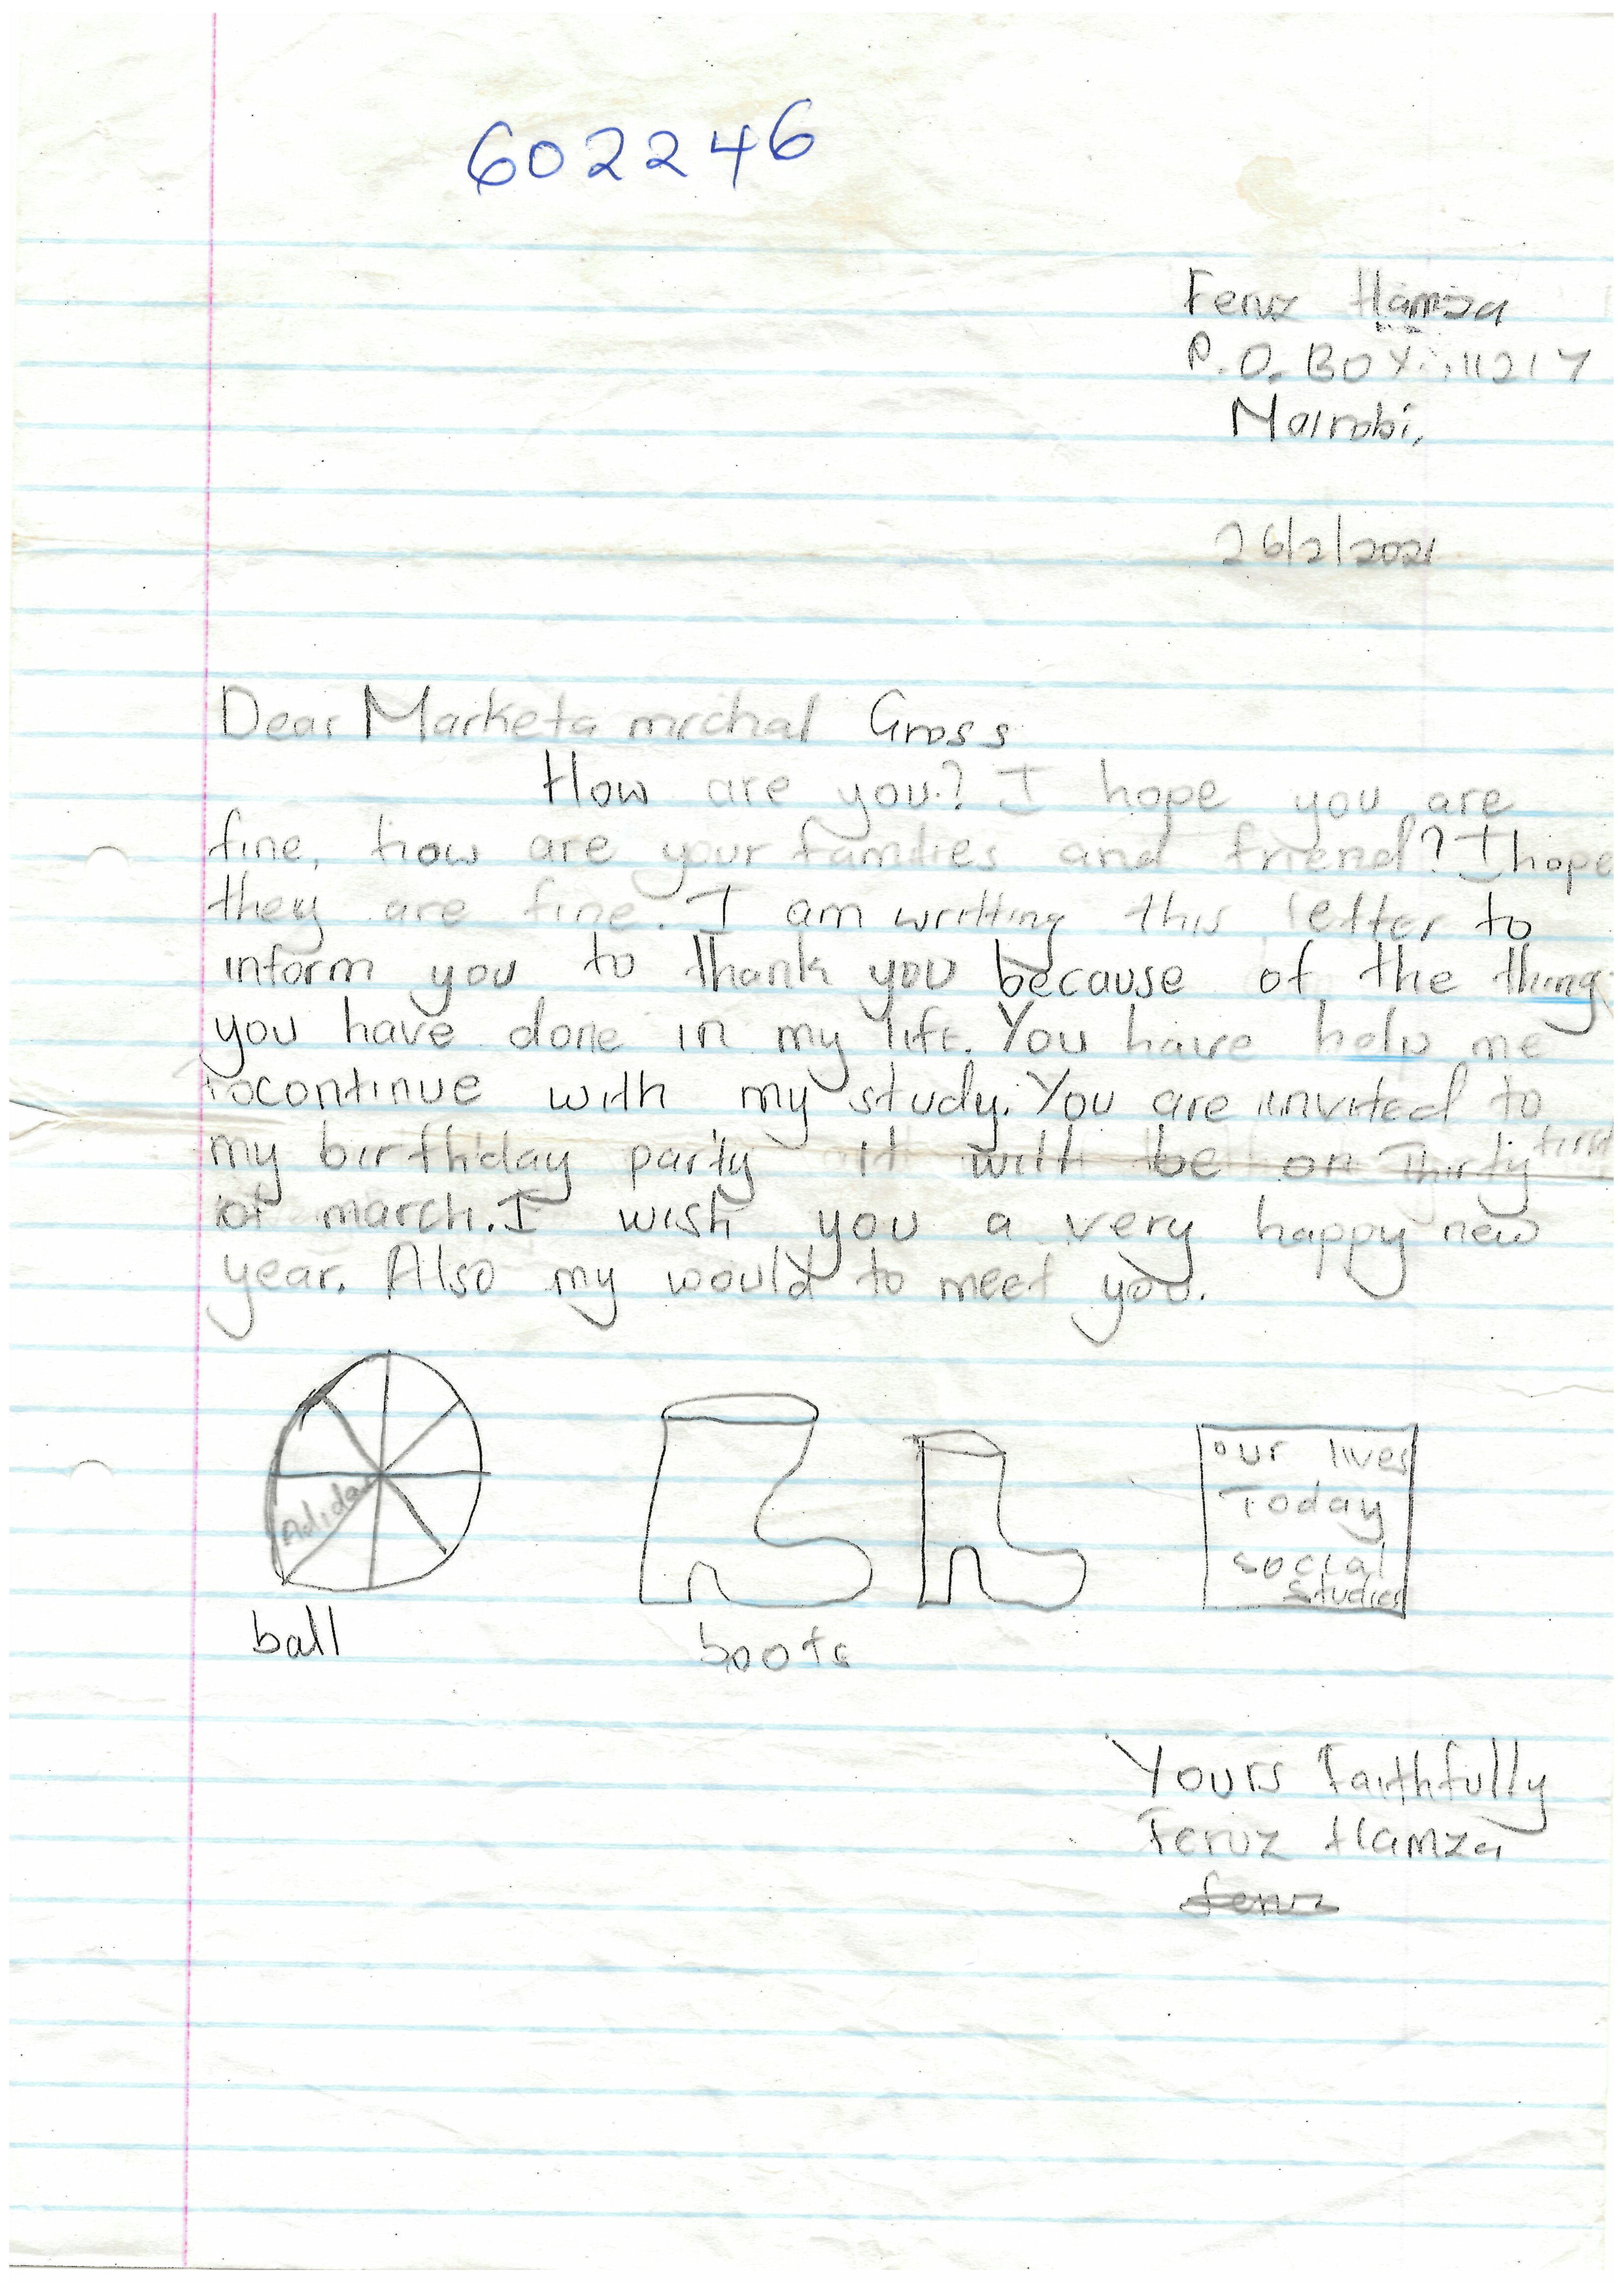 602246
Feruz Hamza
P.O. BOX 11217
Nairobi,
26/2/2021
Dear Marketa michal Gross
How are you? I hope you are
fine, how are your families and friend? I hope
they are fine. I am writting this letter to
inform you to thank you because of the thing
you have done in my life. You have help me
to continue with my study. You are invited to
my birthday party it will be on Thirty first
of march. I wish you a very happy new
year. Also my would to meet you.
Adidas
our lives
Today
social
studies
ball
boots
Yours Faithfully
Feruz Hamza
feruz